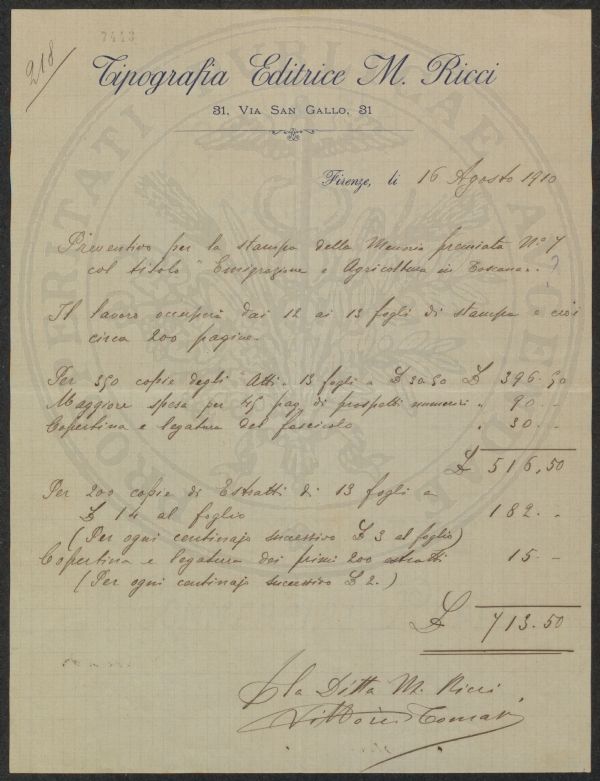 7413
218
Tipografia Editrice M. Ricci
31, Via San Gallo, 31
Firenze, li 16 Agosto 1910
Preventivo per la stampa della Memoria premiata N° 7
col titolo "Emigrazione e Agricoltura in Toscana".. ?
Il lavoro occuperà dai 12 ai 13 fogli di stampa e cioè
circa 200 pagine.
Per 350 copie degli "Atti". 13 fogli a £ 30.50 £ 396.50
Maggiore spesa per 45 pag. di prospetti numerici " 90 . -
Copertina e legatura del fascicolo " 30 . -
£ 516,50
Per 200 copie di Estratti di 13 fogli a
£ 14 al foglio 182 . -
(Per ogni centinajo successivo £ 3 al foglio)
Copertina e legatura dei primi 200 estratti 15 . -
(Per ogni centinajo successivo £ 2.)
£ 713.50
p la Ditta M. Ricci
Vittorio